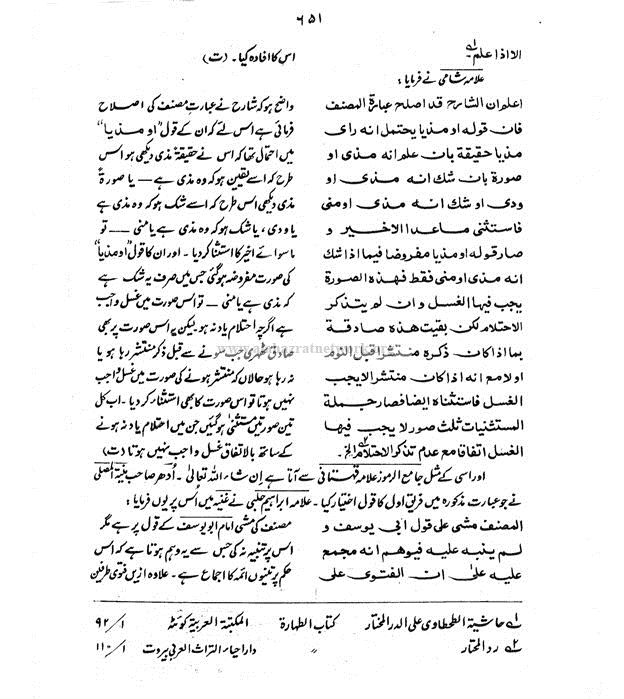 ۶۵۱
الا اذا علم۔؎۱
علامہ شامی نے فرمایا :
اعلم ان الشارح قد اصلح عبارة المصنف
فان قوله او مذیا یحتمل انه رای
مذیا حقیقة بان علم انه مذی او
صورة بان شك انه مذی او
ودی او شك انه مذی او منی
فاستثنی ماعدا الاخیر و
صار قوله او مذیا مفروضا فیما اذا شك
انه مذی او منی فقط فهذه الصورة
یجب فیها الغسل و ان لم یتذكر
الاحتلام لكن بقیت هذه صادقة
بما اذا كان ذكره منتشرا قبل النوم
او لا مع انه اذا كان منتشرا لا یجب
الغسل فاستثناه ایضا فصار جملة
المستثنیات ثلث صور لا یجب فیها
الغسل اتفاقا مع عدم تذكر الاحتلام الخ۔؎۲
اس کا افادہ کیا۔ (ت)
واضح ہو کہ شارح نے عبارتِ مصنف کی اصلاح
فرمائی ہے اس لئے کہ ان کے قول "او مذیا"
میں احتمال تھا کہ اس نے حقیقۃً مذی دیکھی ہو اس
طرح کہ اسے یقین ہو کہ وہ مذی ہے — یا صورۃً
مذی دیکھی اس طرح کہ اسے شک ہو کہ وہ مذی ہے
یا ودی، یا شک ہو کہ وہ مذی ہے یا منی — تو
ماسوائے اخیر کا استثنا کر دیا۔ اور ان کا قول "او مذیا"
کی صورت مفروضہ ہو گئی جس میں صرف یہ شک ہے
کہ مذی ہے یا منی — تو اس صورت میں غسل واجب
ہے اگرچہ احتلام یاد نہ ہو۔ لیکن یہ اس صورت پر بھی
صادق تھی جب سونے سے قبل ذکر منتشر رہا ہو یا
نہ رہا ہو حالاں کہ منتشر ہونے کی صورت میں غسل واجب
نہیں ہوتا تو اس صورت کا بھی استثناء کر دیا۔ اب کل
تین صورتیں مستثنٰی ہو گئیں جن میں احتلام یاد نہ ہونے
کے ساتھ بالاتفاق غسل واجب نہیں ہوتا (ت)
اور اسی کے مثل جامع الرموز علامہ قہستانی سے آتا ہے اِن شاء اللہ تعالٰی۔ اُدھر صاحبِ منیۃ المصلی
نے جو عبارت مذکورہ میں فریق اول کا قول اختیار کیا۔ علامہ ابراہیم حلبی نے غنیہ میں اس پر یوں فرمایا :
المصنف مشی علی قول ابی یوسف و
لم ینبه علیه فیوهم انه مجمع
علیه علی ان الفتوی علی
مصنف کی مشی امام ابو یوسف کے قول پر ہے مگر
اس پر تنبیہ نہ کی جس سے یہ وہم ہوتا ہے کہ اس
حکم پر تینوں ائمہ کا اجماع ہے۔ علاوہ ازیں فتوٰی طرفین
؎۱ حاشیۃ الطحطاوی علی الدر المختار کتاب الطہارۃ المکتبۃ العربیۃ کوئٹہ ۱/ ۹۲
؎۲ رد المحتار " دار احیاء التراث العربی بیروت ۱/ ۱۱۰